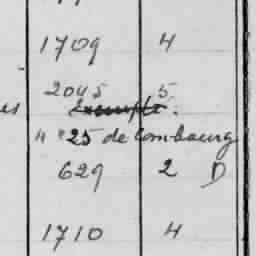 1709 4
2045 5
es
4 " 25 de Combourg
629 2 D
1710 4